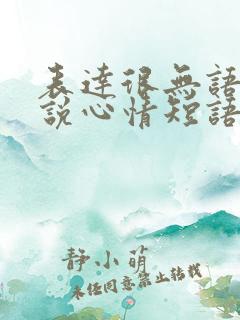 表達很無語
說心情短語
靜小萌
未經同意禁止轉載